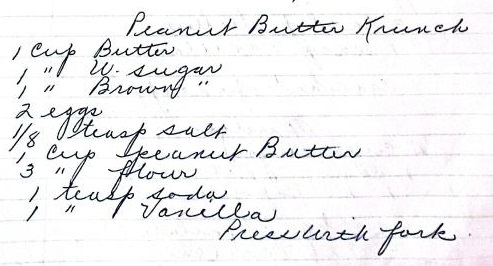 Peanut Butter Krunch
1 Cup Butter
1 " W. sugar
1 " Brown "
2 eggs
1/8 teasp salt
1 Cup peanut Butter
3 " flour
1 teasp soda
1 " Vanilla
Press with fork